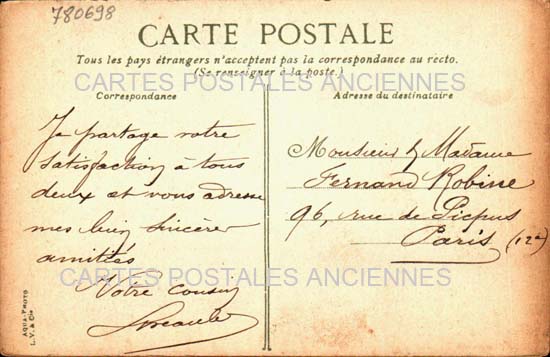 780698
CARTE POSTALE
Tous les pays étrangers n'acceptent pas la correspondance au recto.
(Se renseigner à la poste.)
CARTES POSTALES ANCIENNES
Correspondance
Adresse du destinataire
Je partage votre
satisfaction à tous
deux et vous adresse
mes bien sincères
amitiés
Votre cousin
Monsieur & Madame
Fernand Robine
96, rue de Picpus
Paris (12e)
CARTES POSTALES ANCIENNES
AQUA-PHOTO
L. V. & Cie